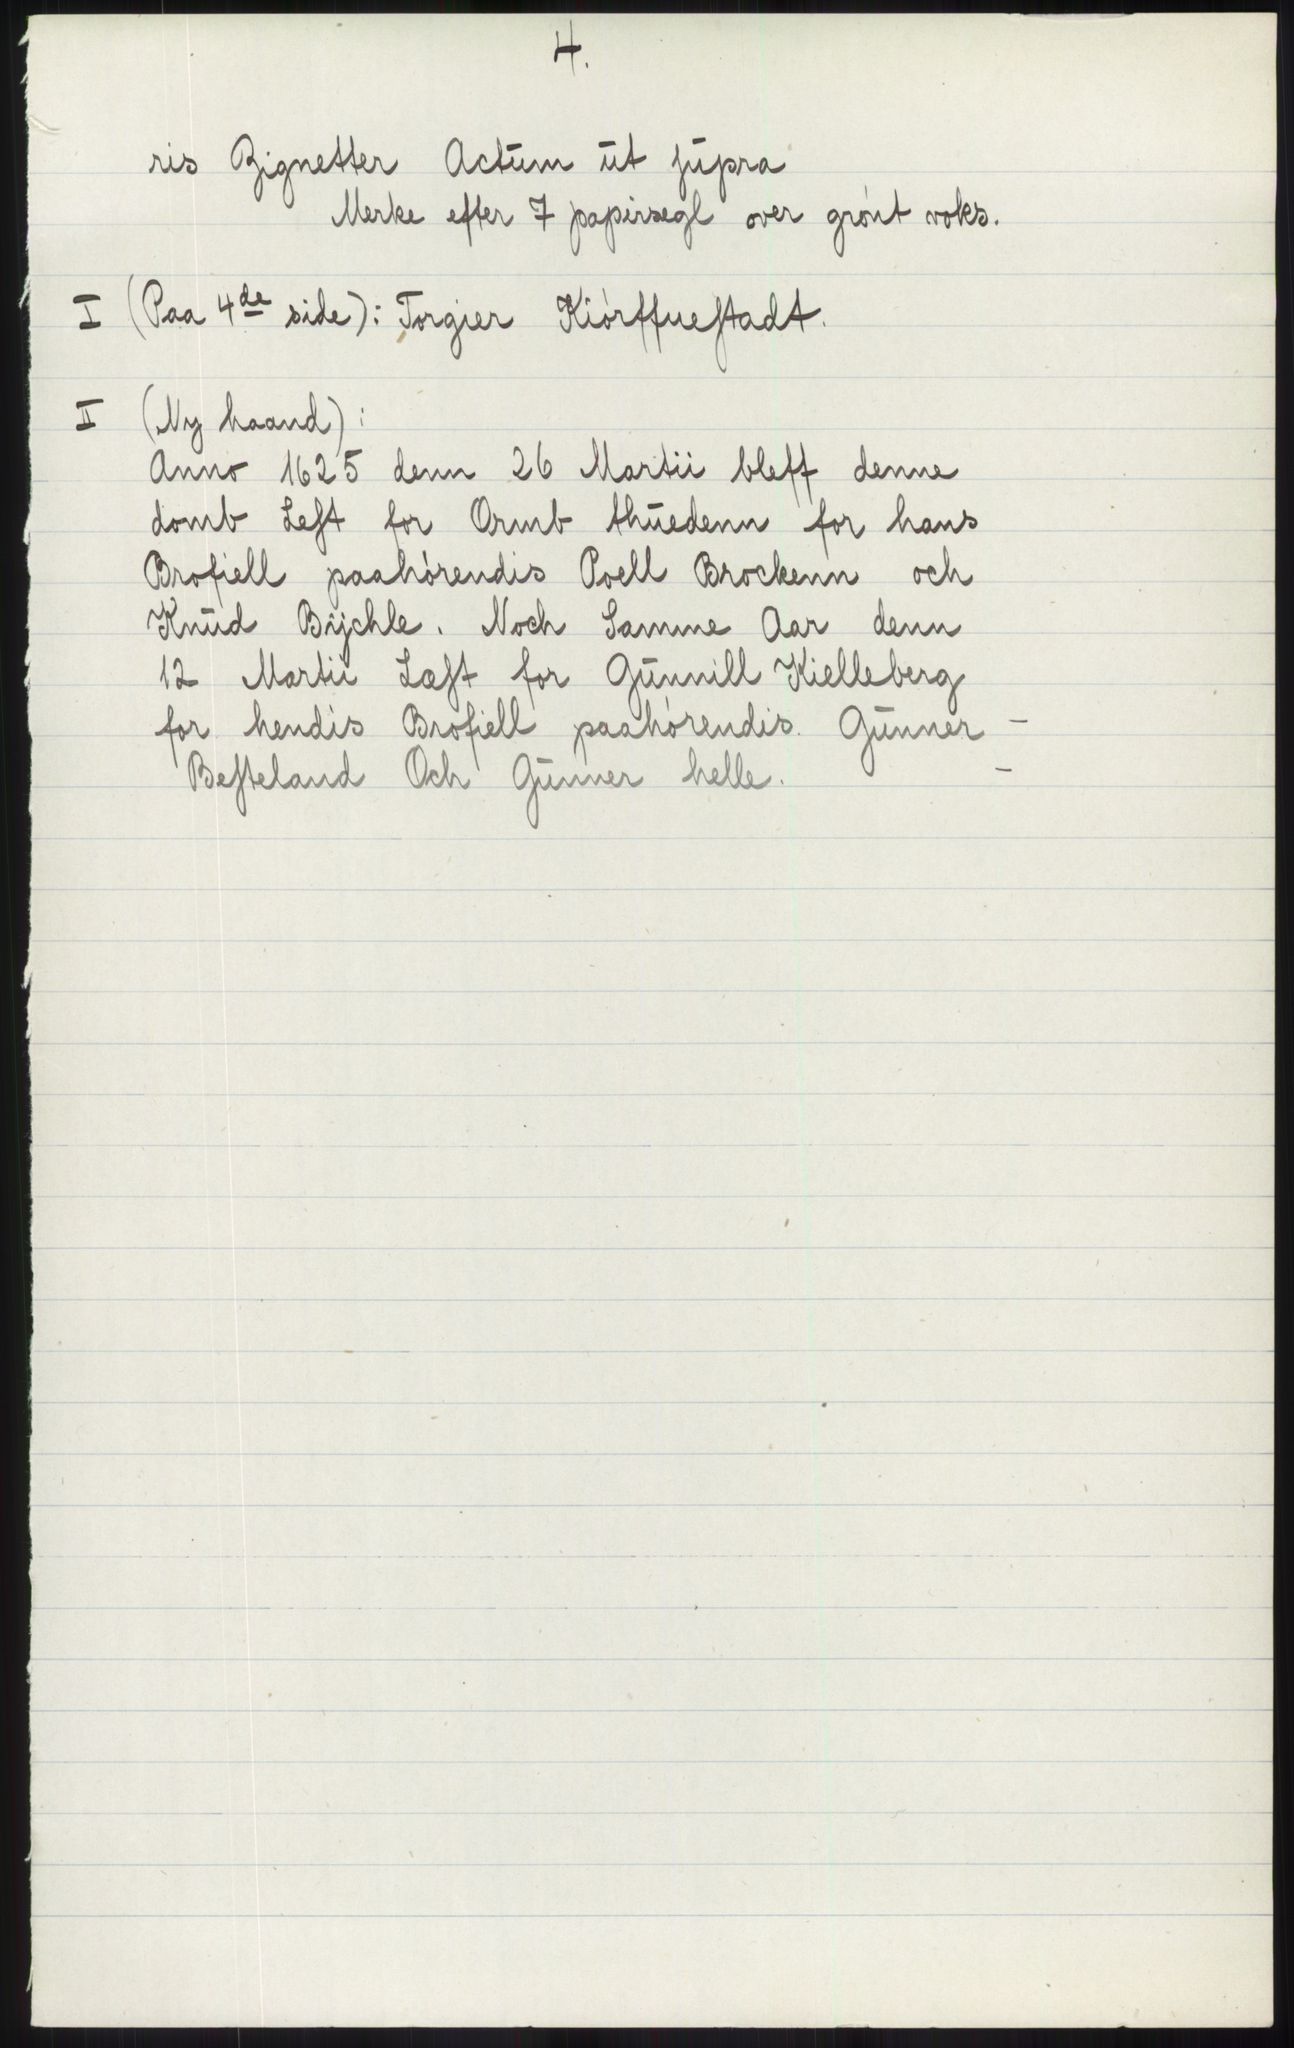 4.
ris Zignetter Actum ut ſupra
Merke efter 7 papirsegl over grónt voks.
I (Paa 4de side): Torgier Kiórffueſtadt.
II (Ny haand):
Anno 1625 denn 26 Martii bleff denne
domb Leſt for Ormb thuedenn for hans
Brofiell paahórendis Poell Brockenn och
Knud Bijchle. Noch Samme Aar denn
12 Martii Læſt for Gunnill Kielleberg
for hendis Brofiell paahórendis. Gunner –
Beſteland Och Gunner helle. –